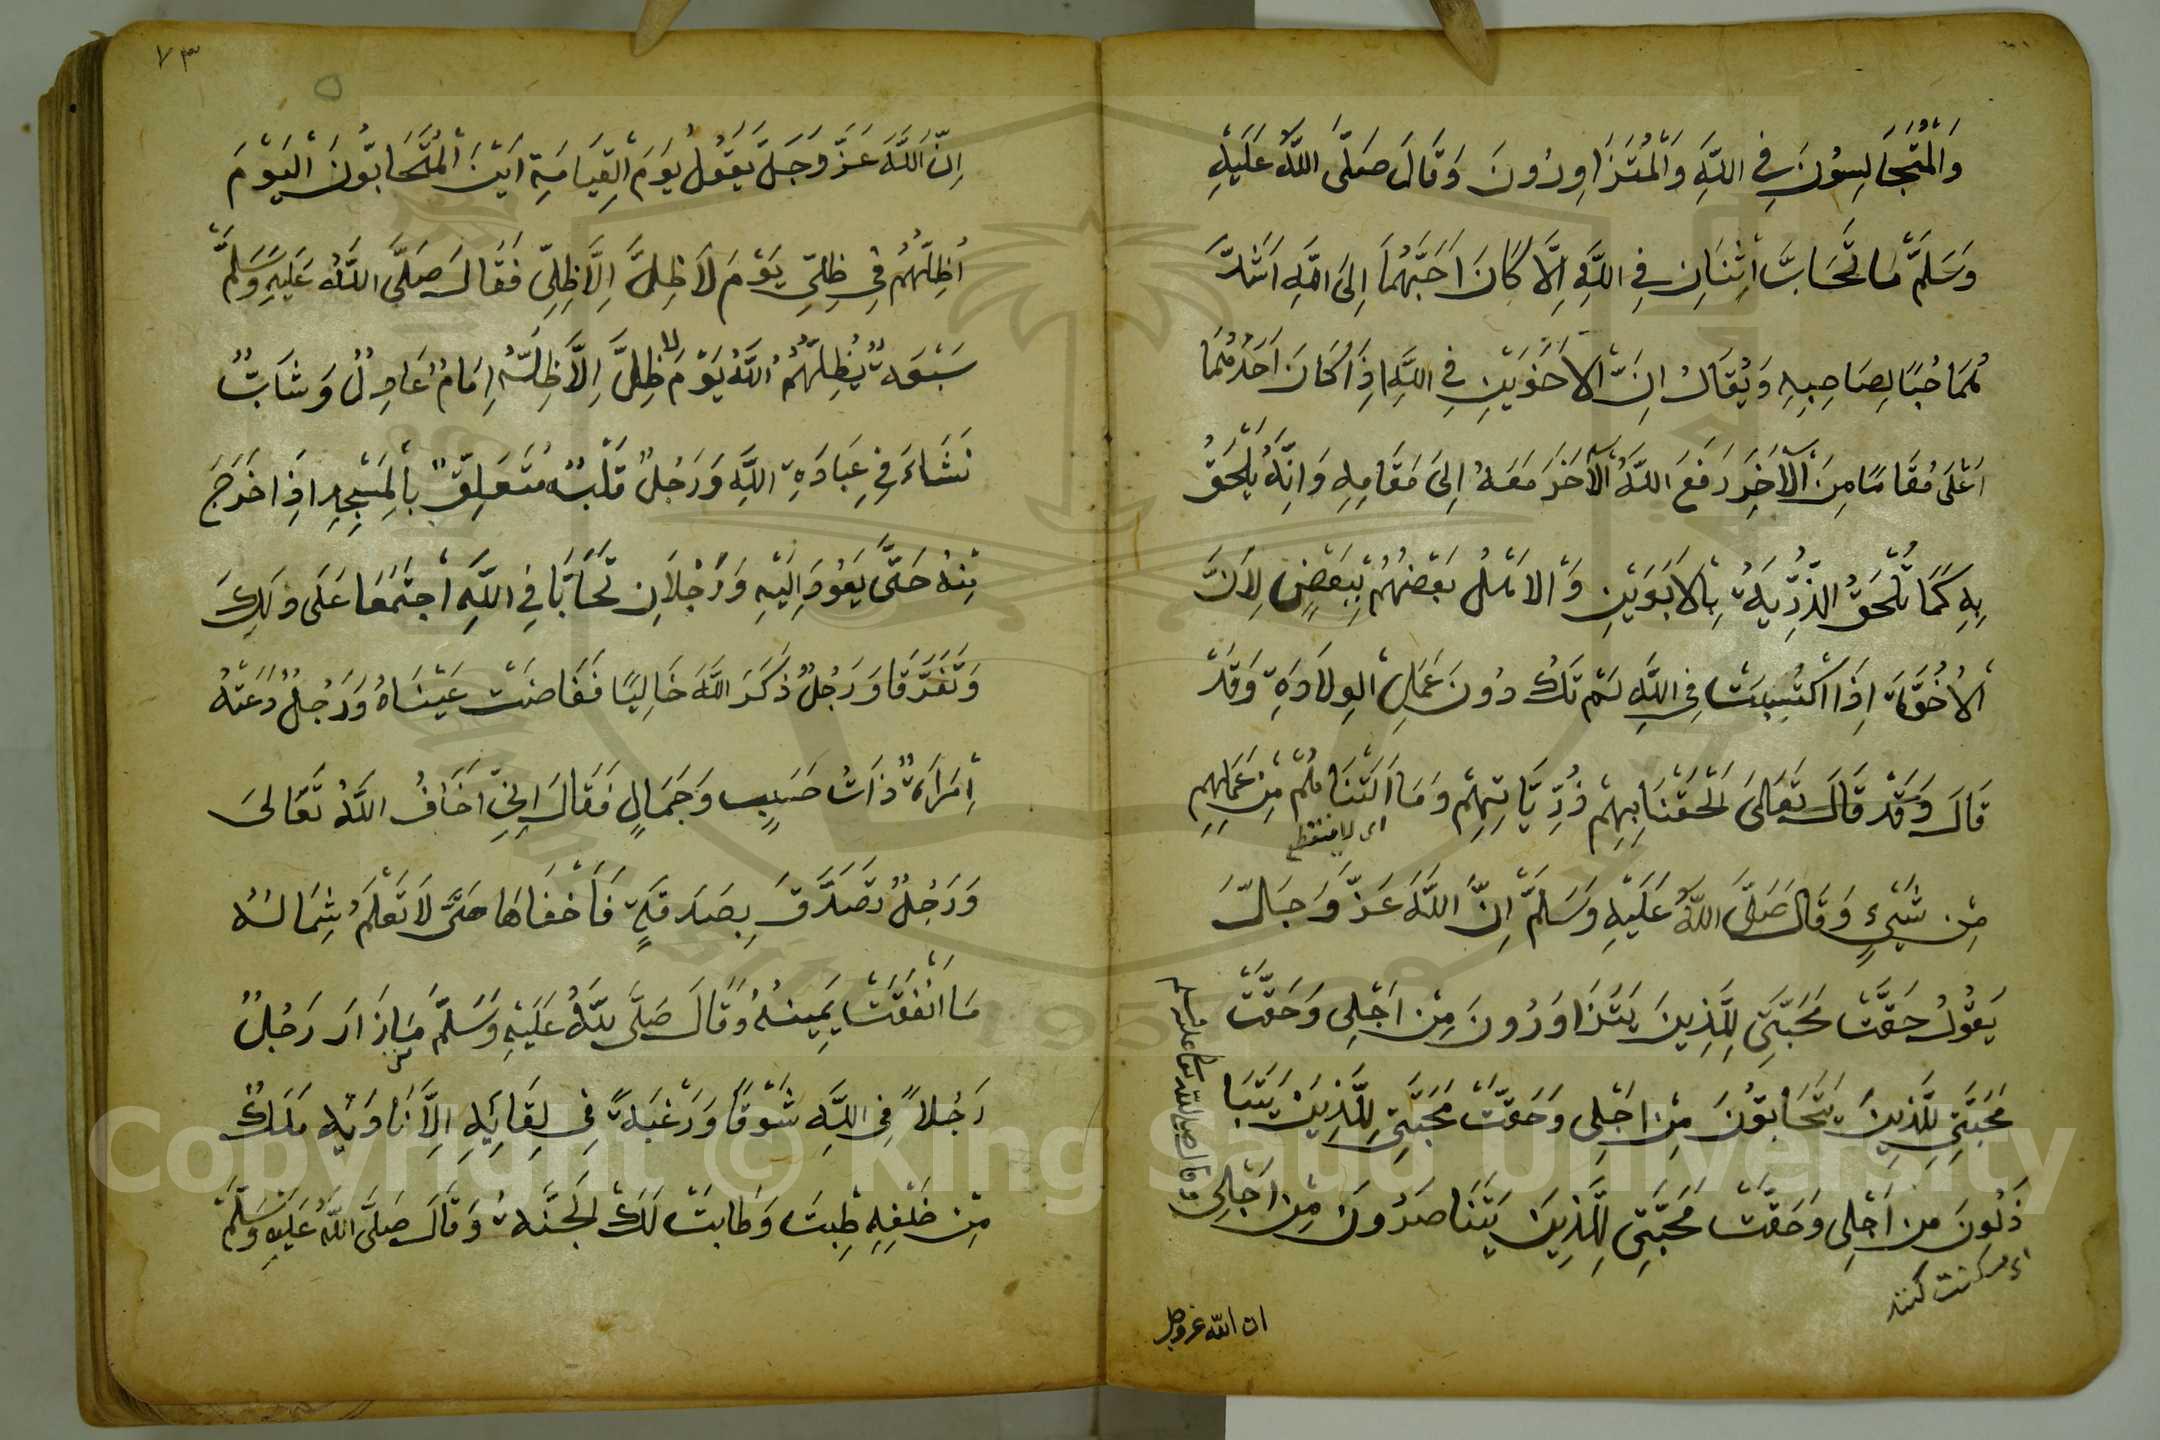 وَالْمُتَجَالِسُونَ فِي اللَّهِ وَالْمُتَزَاوِرُونَ وَقَالَ صَلَّى اللَّهُ عَلَيْهِ
وَسَلَّمَ مَا تَحَابَّ اثْنَانِ فِي اللَّهِ اِلَّا كَانَ اَحَبَّهُمَا اِلَى اللَّهِ اَشَدَّ
هُمَا حُبًّا لِصَاحِبِهِ وَيُقَالُ اِنَّ الْاَخَوَيْنِ فِي اللَّهِ اِذَا كَانَ اَحَدُهُمَا
اَعْلَى مُقَامًا مِنَ الْآخَرِ رَفَعَ اللَّهُ الْآخَرَ مَعَهُ اِلَى مَقَامِهِ وَاِنَّهُ يَلْحَقُ
بِهِ كَمَا تَلْحَقُ الذُّرِّيَّةُ بِالْاَبَوَيْنِ وَالْاَهْلُ بَعْضُهُمْ بِبَعْضٍ لِاَنَّ
الْاُخُوَّةَ اِذَا اكْتُسِبَتْ فِي اللَّهِ لَمْ تَكُ دُونَ عَمَلِ الْوِلَادَةِ وَقَدْ
قَالَ وَقَدْ قَالَ تَعَالَى اَلْحَقْنَا بِهِمْ ذُرِّيَّاتِهِمْ وَمَا اَلَتْنَاهُمْ مِنْ عَمَلِهِمْ
مِنْ شَيْءٍ وَقَالَ صَلَّى اللَّهُ عَلَيْهِ وَسَلَّمَ اِنَّ اللَّهَ عَزَّ وَجَلَّ
يَقُولُ حَقَّتْ مَحَبَّتِي لِلَّذِينَ يَتَزَاوَرُونَ مِنْ اَجْلِي وَحَقَّتْ
مَحَبَّتِي لِلَّذِينَ يَتَحَابُّونَ مِنْ اَجْلِي وَحَقَّتْ مَحَبَّتِي لِلَّذِينَ يَتَبَا
ذَلُونَ مِنْ اَجْلِي وَحَقَّتْ مَحَبَّتِي لِلَّذِينَ يَتَنَاصَرُونَ مِنْ اَجْلِي
ان الله عزوجل
٧٣
اِنَّ اللَّهَ عَزَّ وَجَلَّ يَقُولُ يَوْمَ الْقِيَامَةِ اَيْنَ الْمُتَحَابُّونَ الْيَوْمَ
اُظِلُّهُمْ فِي ظِلِّي يَوْمَ لَا ظِلَّ اِلَّا ظِلِّي فَقَالَ صَلَّى اللَّهُ عَلَيْهِ وَسَلَّمَ
سَبْعَةٌ يُظِلُّهُمُ اللَّهُ يَوْمَ لَا ظِلَّ اِلَّا ظِلُّهُ اِمَامٌ عَادِلٌ وَشَابٌّ
نَشَاءَ فِي عِبَادَةِ اللَّهِ وَرَجُلٌ قَلْبُهُ مُتَعَلِّقٌ بِالْمَسْجِدِ اِذَا خَرَجَ
مِنْهُ حَتَّى يَعُودَ اِلَيْهِ وَرَجُلَانِ تَحَابَّا فِي اللَّهِ اجْتَمَعَا عَلَى ذَلِكَ
وَتَفَرَّقَا وَرَجُلٌ ذَكَرَ اللَّهَ خَالِيًا فَفَاضَتْ عَيْنَاهُ وَرَجُلٌ دَعَتْهُ
اِمْرَاَةٌ ذَاتُ حَسَبٍ وَجَمَالٍ فَقَالَ اِنِّي اَخَافُ اللَّهَ تَعَالَى
وَرَجُلٌ تَصَدَّقَ بِصَدَقَةٍ فَاَخْفَاهَا حَتَّى لَا تَعْلَمَ شِمَالُهُ
مَا اَنْفَقَتْ يَمِينُهُ وَقَالَ صَلَّى اللَّهُ عَلَيْهِ وَسَلَّمَ مَا زَارَ رَجُلٌ
رَجُلًا فِي اللَّهِ شَوْقًا وَرَغْبَةً فِي لِقَائِهِ اِلَّا نَادَيْهِ مَلَكٌ
مِنْ خَلْفِهِ طِبْتَ وَطَابَتْ لَكَ الْجَنَّةُ وَقَالَ صَلَّى اللَّهُ عَلَيْهِ وَسَلَّمَ
Copyright © King Saud University
1957